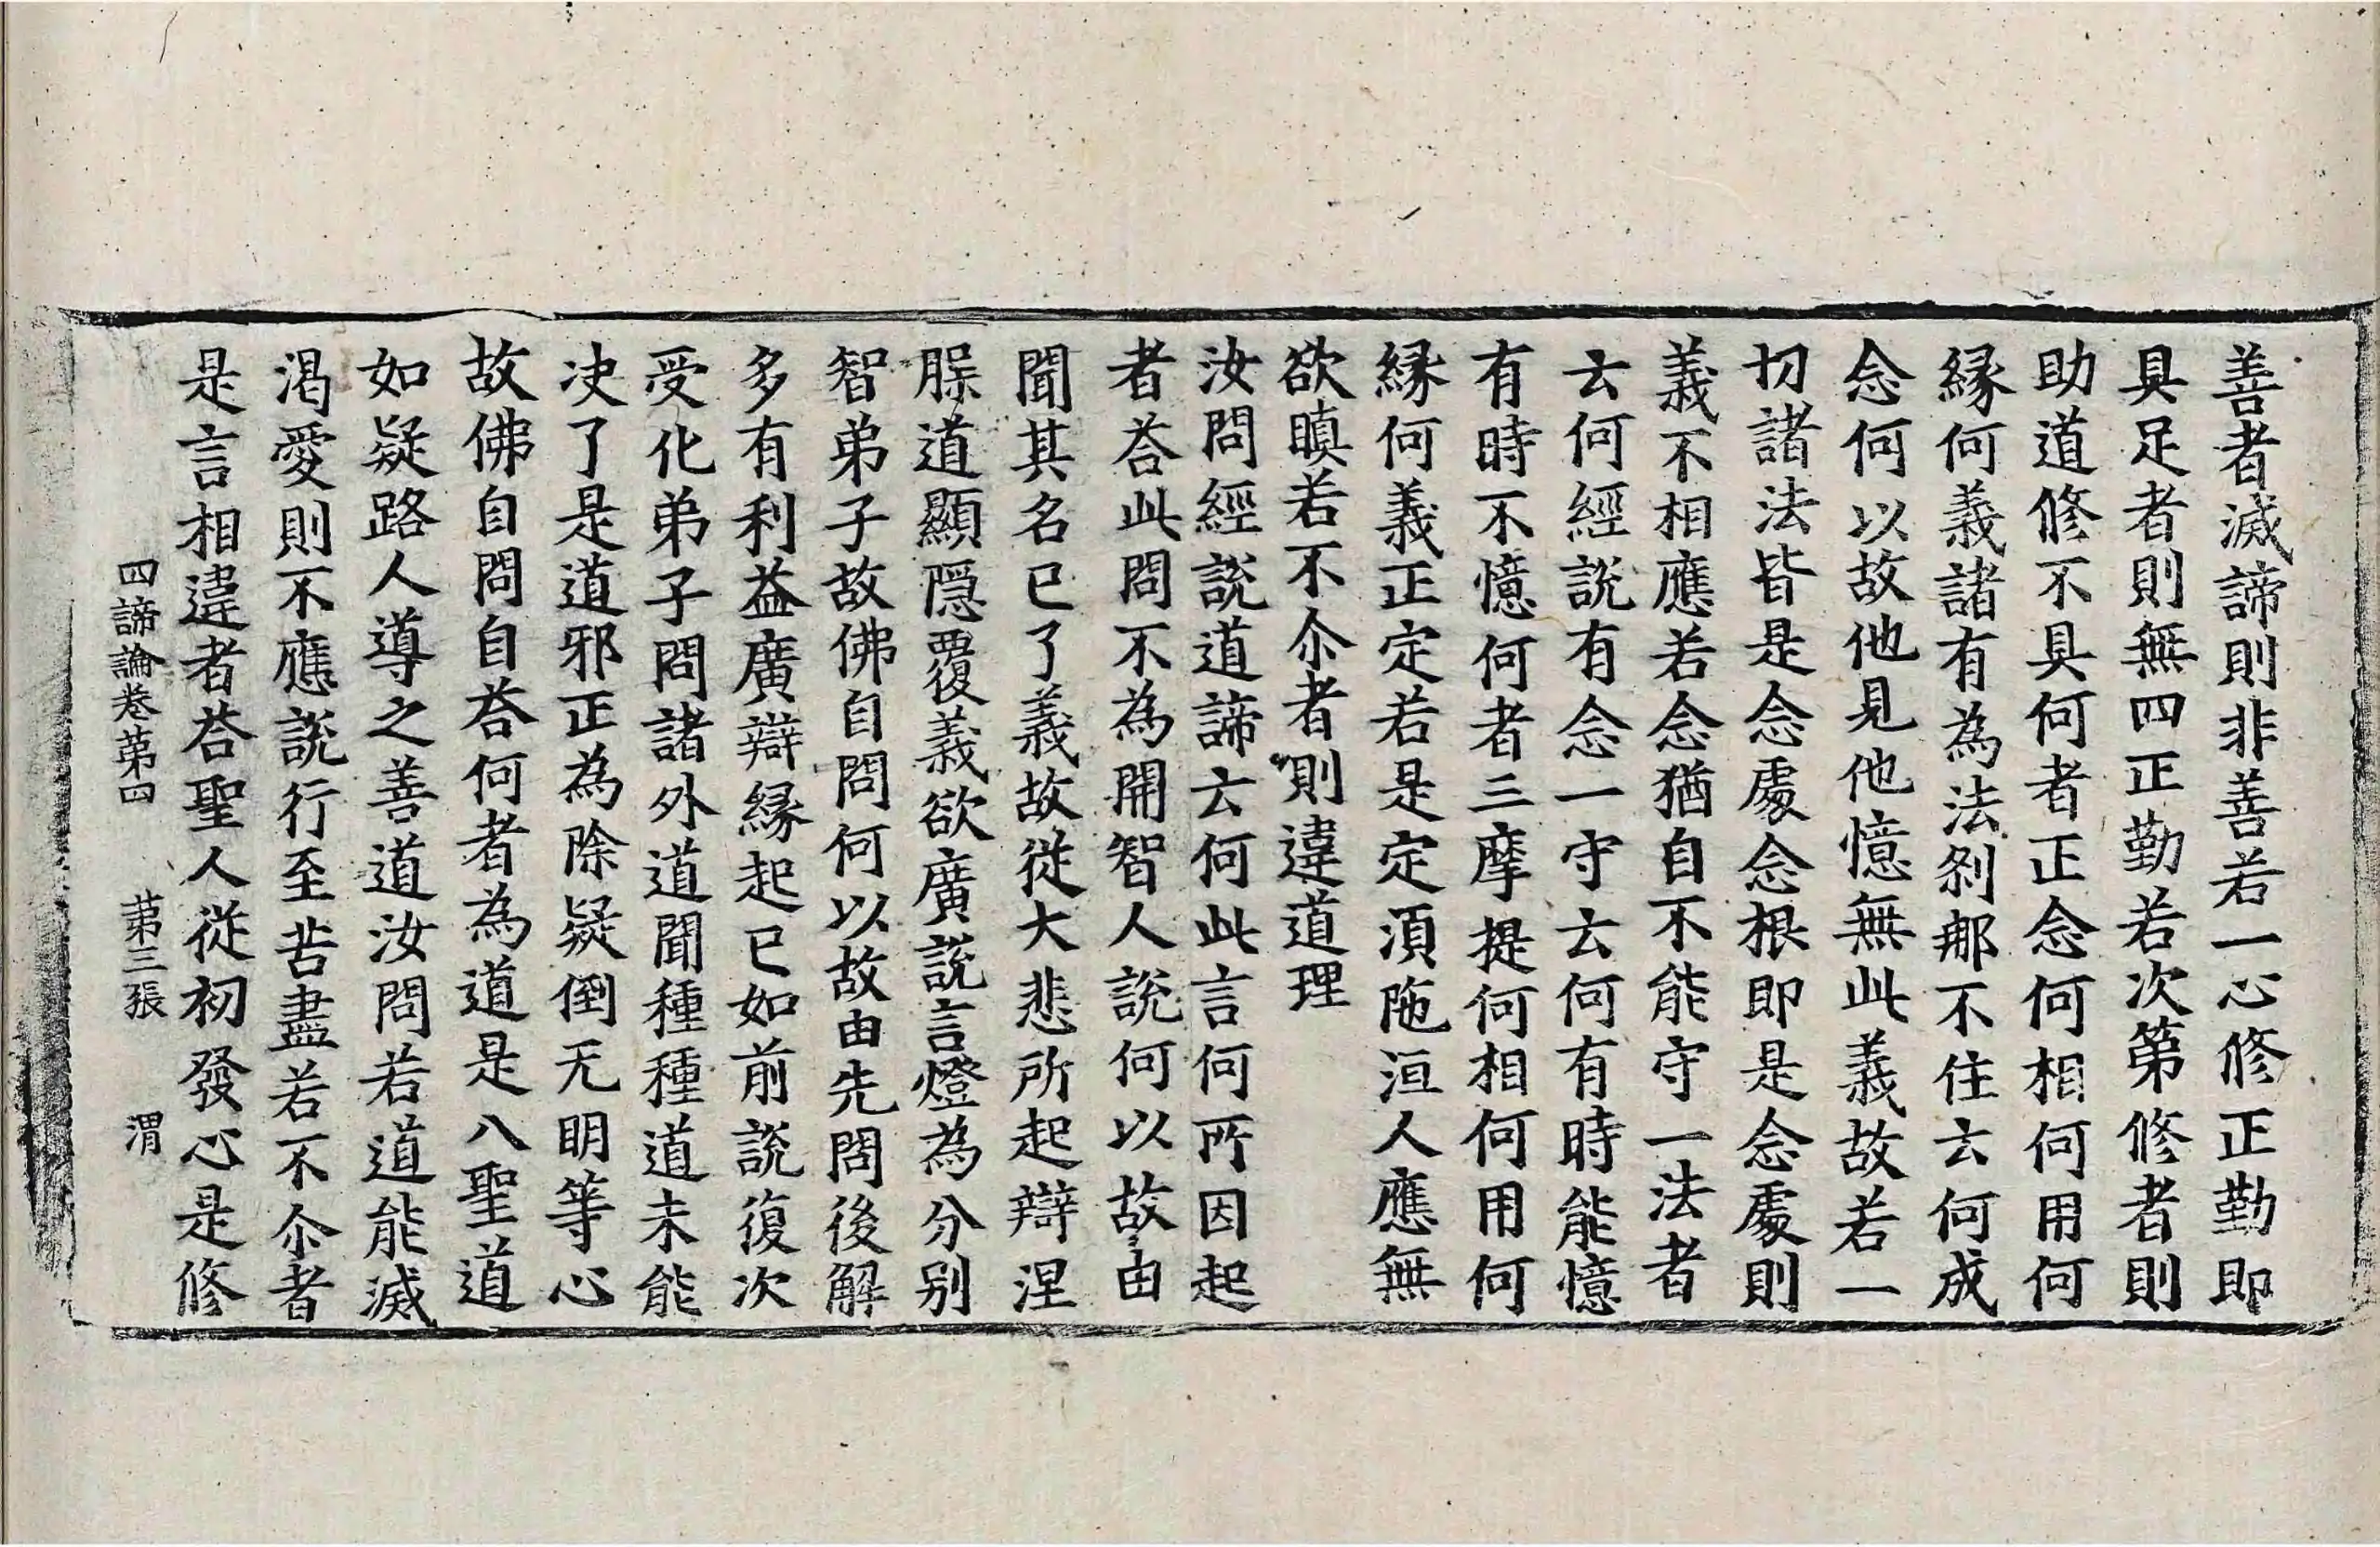 善者滅諦則非善若一心修正勤即
具足者則無四正勤若次第修者則
助道修不具何者正念何相何用何
縁何義諸有為法刹那不住云何成
念何以故他見他憶無此義故若一
切諸法皆是念處念根即是念處則
義不相應若念猶自不能守一法者
云何經說有念一守云何有時能憶
有時不憶何者三摩提何相何用何
縁何義正定若是定須陁洹人應無
欲瞋若不尒者則違道理
汝問經說道諦云何此言何所因起
者荅此問不為開智人說何以故由
聞其名已了義故從大悲所起辯涅
槃道顯隱覆義欲廣說言燈為分別
智弟子故佛自問何以故由先問後解
多有利益廣辯縁起已如前說復次
受化弟子問諸外道聞種種道未能
決了是道邪正為除疑倒无明等心
故佛自問自荅何者為道是八聖道
如疑路人導之善道汝問若道能滅
渴愛則不應說行至苦盡若不尒者
是言相違者荅聖人從初發心是修
四諦論卷第四 第三張 渭